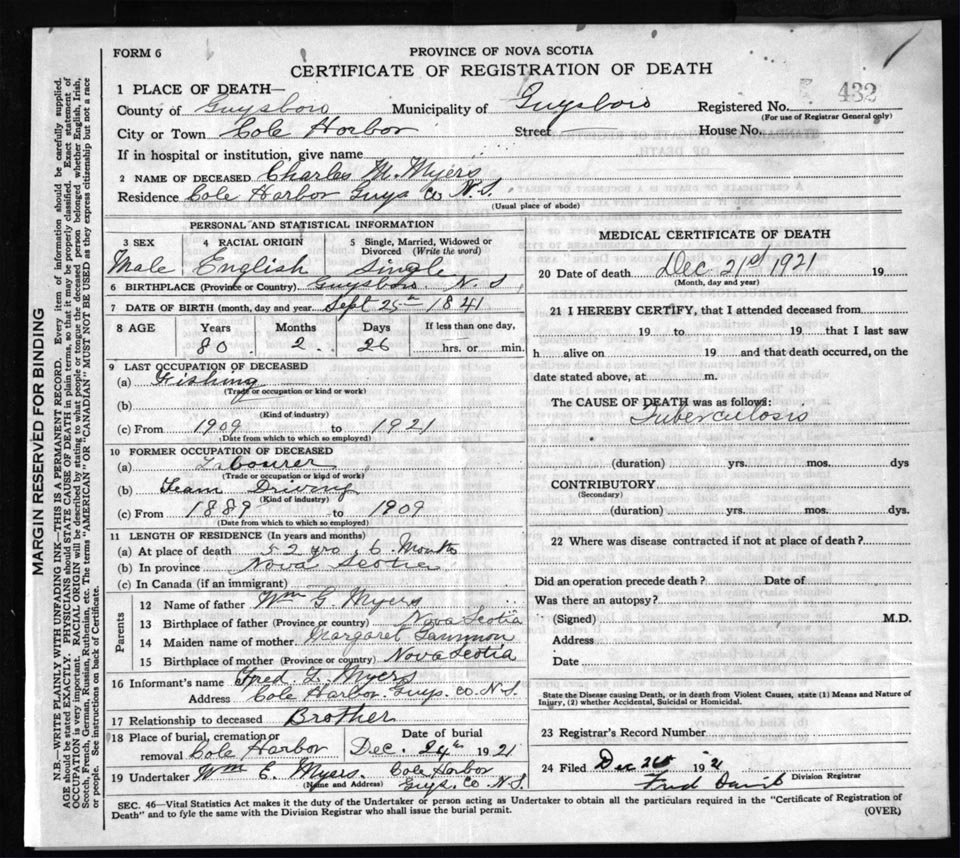 FORM 6
PROVINCE OF NOVA SCOTIA
CERTIFICATE OF REGISTRATION OF DEATH
1 PLACE OF DEATH—
County of Guysboro Municipality of Guysboro Registered No. 432
(For use of Registrar General only)
City or Town Cole Harbor Street House No.
If in hospital or institution, give name
2 NAME OF DECEASED Charles M. Myers
Residence Cole Harbor Guys Co N.S.
(Usual place of abode)
PERSONAL AND STATISTICAL INFORMATION
3 SEX 4 RACIAL ORIGIN 5 Single, Married, Widowed or Divorced (Write the word)
Male English Single
6 BIRTHPLACE (Province or Country) Guysboro N.S.
7 DATE OF BIRTH (month, day and year) Sept 25th 1841
8 AGE Years Months Days If less than one day,
80 2 26 hrs. or min.
9 LAST OCCUPATION OF DECEASED
(a) Fishing
(Trade or occupation or kind or work)
(b)
(Kind of industry)
(c) From 1909 to 1921
(Date from which to which so employed)
10 FORMER OCCUPATION OF DECEASED
(a) Labourer
(Trade or occupation or kind of work)
(b) Team Driving
(Kind of industry)
(c) From 1889 to 1909
(Date from which to which so employed)
11 LENGTH OF RESIDENCE (In years and months)
(a) At place of death 52 yrs, 6 Months
(b) In province Nova Scotia
(c) In Canada (if an immigrant)
Parents
12 Name of father Wm G. Myers
13 Birthplace of father (Province or country) Nova Scotia
14 Maiden name of mother Margaret
15 Birthplace of mother (Province or country) Nova Scotia
16 Informant's name Fred Myers
Address Cole Harbor Guys. Co N.S.
17 Relationship to deceased Brother
18 Place of burial, cremation or removal Cole Harbor
Date of burial
Dec. 24th 1921
19 Undertaker Wm E. Myers. Cole Harbor
(Name and Address) Guys. Co N.S.
MEDICAL CERTIFICATE OF DEATH
20 Date of death Dec 21st 1921 19
(Month, day and year)
21 I HEREBY CERTIFY, that I attended deceased from
19 to 19 that I last saw
h alive on 19 and that death occurred, on the
date stated above, at m.
The CAUSE OF DEATH was as follows:
Tuberculosis
(duration) yrs. mos. dys
CONTRIBUTORY
(Secondary)
(duration) yrs. mos. dys.
22 Where was disease contracted if not at place of death?
Did an operation precede death? Date of
Was there an autopsy?
(Signed) M.D.
Address
Date
State the Disease causing Death, or in death from Violent Causes, state (1) Means and Nature of
Injury, (2) whether Accidental, Suicidal or Homicidal.
23 Registrar's Record Number
24 Filed Dec 26th 1921
Fred
Division Registrar
SEC. 46—Vital Statistics Act makes it the duty of the Undertaker or person acting as Undertaker to obtain all the particulars required in the "Certificate of Registration of
Death" and to fyle the same with the Division Registrar who shall issue the burial permit.
(OVER)
MARGIN RESERVED FOR BINDING
N.B.—WRITE PLAINLY WITH UNFADING INK—THIS IS A PERMANENT RECORD. Every item of information should be carefully supplied.
AGE should be stated EXACTLY. PHYSICIANS should STATE CAUSE OF DEATH in plain terms, so that it may be properly classified. Exact statement of
OCCUPATION is very important. RACIAL ORIGIN will be described by stating to what people or tongue the deceased person belonged whether English, Irish,
Scotch, French, German, Russian, Ruthenian, etc. The terms "AMERICAN" OR "CANADIAN" MUST NOT BE USED as they express citizenship but not a race
or people. See instructions on back of Certificate.